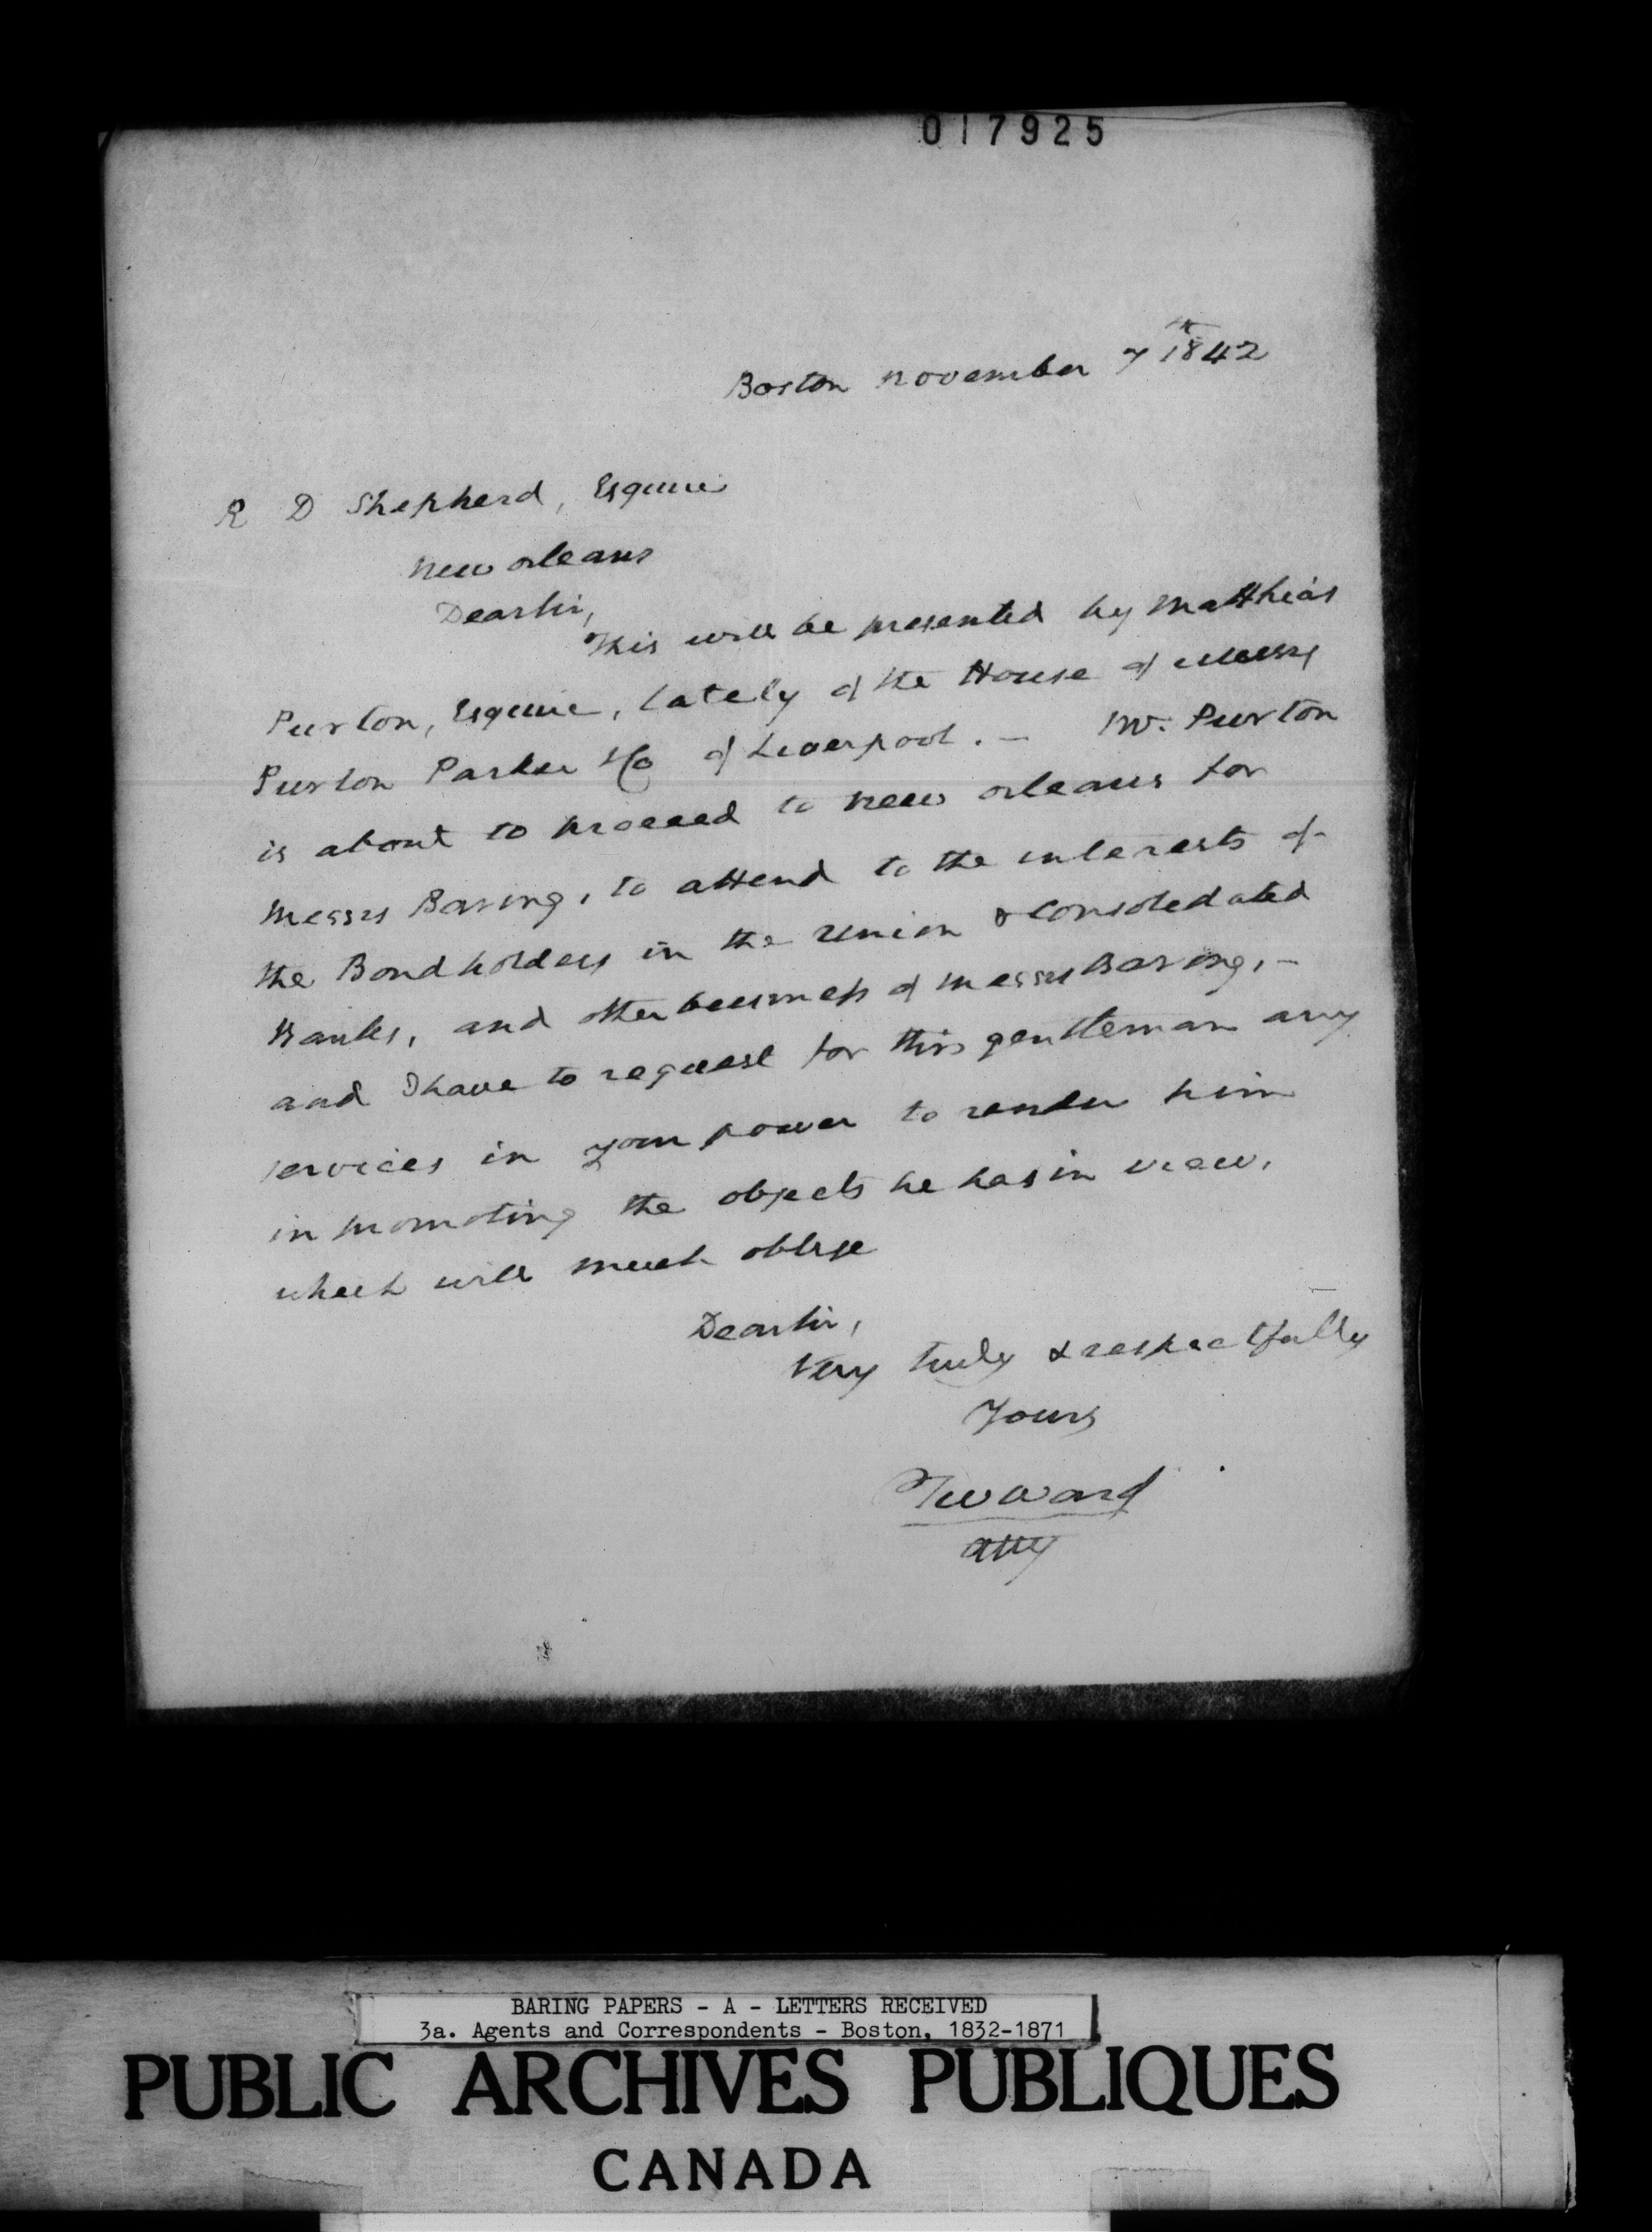 017925
Boston November 7th 1842
R D Shepherd, Esquire
New Orleans
Dear Sir,
This will be presented by Matthias
Purton, Esquire, lately of the House of Messrs
Purton Parker & Co of Liverpool. — Mr. Purton
is about to proceed to New Orleans for
Messrs Baring, to attend to the interests of
the Bondholders in the Union & Consolidated
Banks, and other business of Messrs Baring, —
and I have to request for this gentleman any
services in your power to render him
in promoting the objects he has in view,
which will much oblige
Dear Sir,
Very truly & respectfully
Yours
TW Ward
atty
BARING PAPERS - A - LETTERS RECEIVED
3a. Agents and Correspondents - Boston, 1832-1871
PUBLIC ARCHIVES PUBLIQUES
CANADA